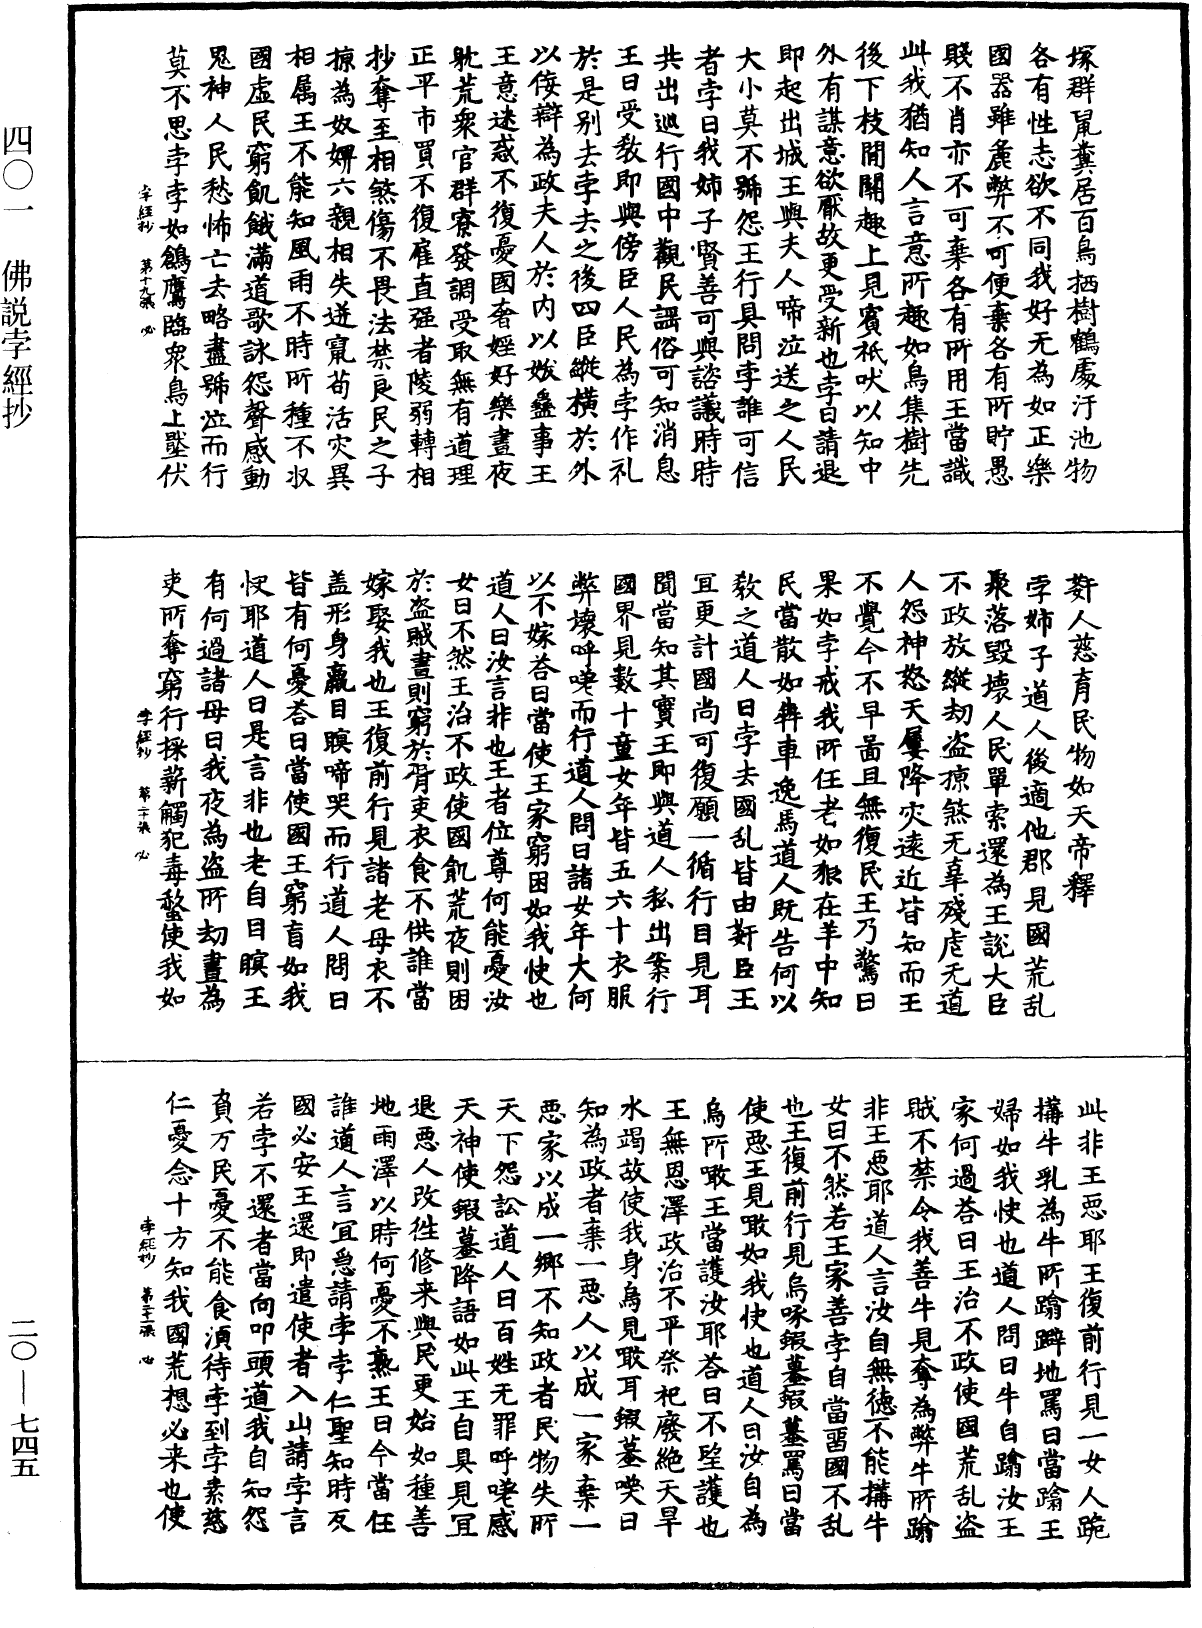 塚群鼠糞居百鳥栖樹鶴處汙池物
各有性志欲不同我好无為如正樂
國器雖麁弊不可便棄各有所貯愚
賤不肖亦不可棄各有所用王當識
此我猶知人言意所趣如鳥集樹先
後下枝閒關趣上見賓祇吠以知中
外有謀意欲厭故更受新也孛曰請退
即起出城王與夫人啼泣送之人民
大小莫不號怨王行具問孛誰可信
者孛曰我姊子賢善可與諮議時時
共出巡行國中觀民謠俗可知消息
王曰受教即與傍臣人民為孛作礼
於是別去孛去之後四臣縱橫於外
以侫辯為政夫人於內以妭蠱事王
王意迷惑不復憂國奢婬好樂晝夜
躭荒衆官群寮發調受取無有道理
正平市買不復雇直强者陵弱轉相
抄奪至相煞傷不畏法禁良民之子
掠為奴婢六親相失迸竄苟活灾異
相屬王不能知風雨不時所種不収
國虛民窮飢餓滿道歌詠怨聲感動
鬼神人民愁怖亡去略盡號泣而行
莫不思孛孛如鵭鷹臨衆鳥上壓伏
孛經抄 第十九張 必
姧人慈育民物如天帝釋
孛姊子道人後適他郡見國荒乱
聚落毀壞人民單索還為王說大臣
不政放縱劫盜掠煞无辜殘虐无道
人怨神怒天屢降灾遠近皆知而王
不覺今不早圖且無復民王乃驚曰
果如孛戒我所任老如狼在羊中知
民當散如犇車逸馬道人既告何以
教之道人曰孛去國乱皆由姧臣王
宜更計國尚可復願一循行目見耳
聞當知其實王即與道人私出案行
國界見數十童女年皆五六十衣服
弊壞呼嗟而行道人問曰諸女年大何
以不嫁荅曰當使王家窮困如我快也
道人曰汝言非也王者位尊何能憂汝
女曰不然王治不政使國飢荒夜則困
於盜賊晝則窮於胥吏衣食不供誰當
嫁娶我也王復前行見諸老母衣不
盖形身羸目瞑啼哭而行道人問曰
皆有何憂荅曰當使國王窮盲如我
快耶道人曰是言非也老自目瞑王
有何過諸母曰我夜為盜所劫晝為
吏所奪窮行採薪觸犯毒螫使我如
孛經抄 第二十張 必
此非王惡耶王復前行見一女人跪
搆牛乳為牛所蹹躃地罵曰當蹹王
婦如我快也道人問曰牛自蹹汝王
家何過荅曰王治不政使國荒乱盜
賊不禁令我善牛見奪為弊牛所蹹
非王惡耶道人言汝自無德不能搆牛
女曰不然若王家善孛自當留國不乱
也王復前行見烏啄蝦蟇蝦蟇罵曰當
使惡王見噉如我快也道人曰汝自為
烏所噉王當護汝耶荅曰不望護也
王無恩澤政治不平祭祀廢絕天旱
水竭故使我身烏見噉耳蝦蟇噗曰
知為政者棄一惡人以成一家棄一
惡家以成一鄉不知政者民物失所
天下怨訟道人曰百姓无罪呼嗟感
天神使蝦蟇降語如此王自具見宜
退惡人改徃修来與民更始如種善
地雨澤以時何憂不熟王曰今當任
誰道人言宜急請孛孛仁聖知時反
國必安王還即遣使者入山請孛言
若孛不還者當向叩頭道我自知怨
負万民憂不能食湏待孛到孛素慈
仁憂念十方知我國荒想必来也使
孛經抄 第二十一張 必
四〇一 佛説孛經抄
二〇—七四五